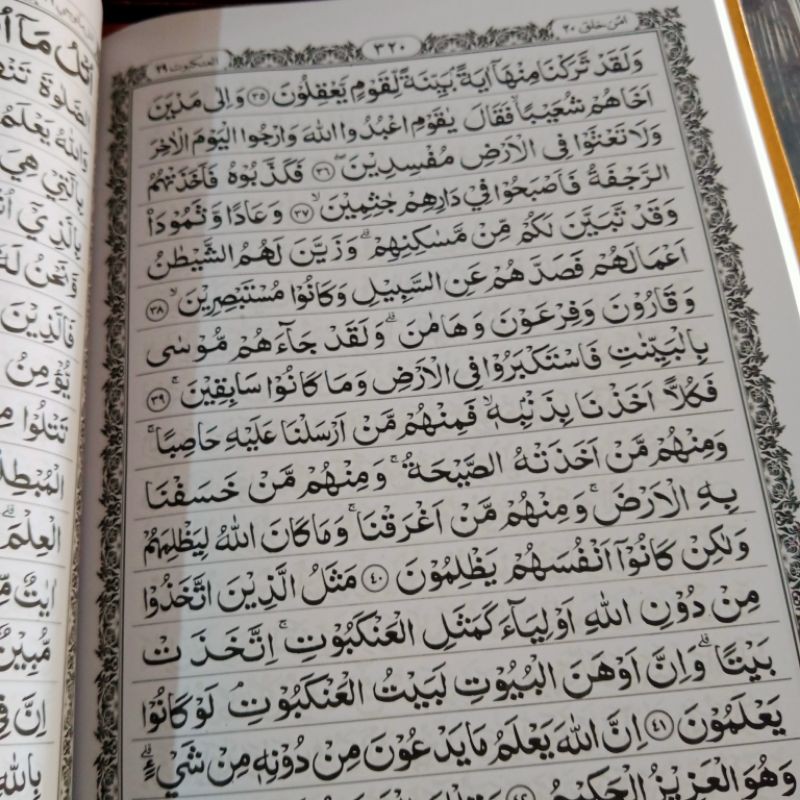 امّن خلق ٢٠
٣٢٠
العنكبوت ٢٩
وَلَقَدْ تَّرَكْنَا مِنْهَآ اٰيَةً ۢ بَيِّنَةً لِّقَوْمٍ يَّعْقِلُوْنَ ﴿٣٥﴾ وَاِلٰى مَدْيَنَ
اَخَاهُمْ شُعَيْبًاۙ فَقَالَ يٰقَوْمِ اعْبُدُوا اللّٰهَ وَارْجُوا الْيَوْمَ الْاٰخِرَ
وَلَا تَعْثَوْا فِى الْاَرْضِ مُفْسِدِيْنَ ۖ ﴿٣٦﴾ فَكَذَّبُوْهُ فَاَخَذَتْهُمُ
الرَّجْفَةُ فَاَصْبَحُوْا فِيْ دَارِهِمْ جٰثِمِيْنَ ۙ ﴿٣٧﴾ وَعَادًا وَّثَمُوْدَا۟
وَقَدْ تَّبَيَّنَ لَكُمْ مِّنْ مَّسٰكِنِهِمْۗ وَزَيَّنَ لَهُمُ الشَّيْطٰنُ
اَعْمَالَهُمْ فَصَدَّهُمْ عَنِ السَّبِيْلِ وَكَانُوْا مُسْتَبْصِرِيْنَ ۙ ﴿٣٨﴾
وَقَارُوْنَ وَفِرْعَوْنَ وَهَامٰنَۗ وَلَقَدْ جَآءَهُمْ مُّوْسٰى
بِالْبَيِّنٰتِ فَاسْتَكْبَرُوْا فِى الْاَرْضِ وَمَا كَانُوْا سَابِقِيْنَ ۚ ﴿٣٩﴾
فَكُلًّا اَخَذْنَا بِذَنْۢبِهٖۙ فَمِنْهُمْ مَّنْ اَرْسَلْنَا عَلَيْهِ حَاصِبًاۚ
وَمِنْهُمْ مَّنْ اَخَذَتْهُ الصَّيْحَةُۚ وَمِنْهُمْ مَّنْ خَسَفْنَا
بِهِ الْاَرْضَۚ وَمِنْهُمْ مَّنْ اَغْرَقْنَاۚ وَمَا كَانَ اللّٰهُ لِيَظْلِمَهُمْ
وَلٰكِنْ كَانُوْٓا اَنْفُسَهُمْ يَظْلِمُوْنَ ﴿٤٠﴾ مَثَلُ الَّذِيْنَ اتَّخَذُوْا
مِنْ دُوْنِ اللّٰهِ اَوْلِيَآءَ كَمَثَلِ الْعَنْكَبُوْتِۚ اِتَّخَذَتْ
بَيْتًاۗ وَاِنَّ اَوْهَنَ الْبُيُوْتِ لَبَيْتُ الْعَنْكَبُوْتِۘ لَوْ كَانُوْا
يَعْلَمُوْنَ ﴿٤١﴾ اِنَّ اللّٰهَ يَعْلَمُ مَا يَدْعُوْنَ مِنْ دُوْنِهٖ مِنْ شَيْءٍۗ
وَهُوَ الْعَزِيْزُ الْحَكِيْمُ ﴿٤٢﴾
اُتْلُ مَآ
الصَّلٰوةَ
وَاللّٰهُ يَعْلَمُ
بِالَّتِيْ هِيَ
بِالَّذِيْٓ
وَنَحْنُ
فَالَّذِيْنَ
يُّؤْمِنُ
تَتْلُوْا
الْعِلْمَۗ
اٰيٰتٌ
مُّبِيْنٌ
اِنَّ
بِاللّٰهِ